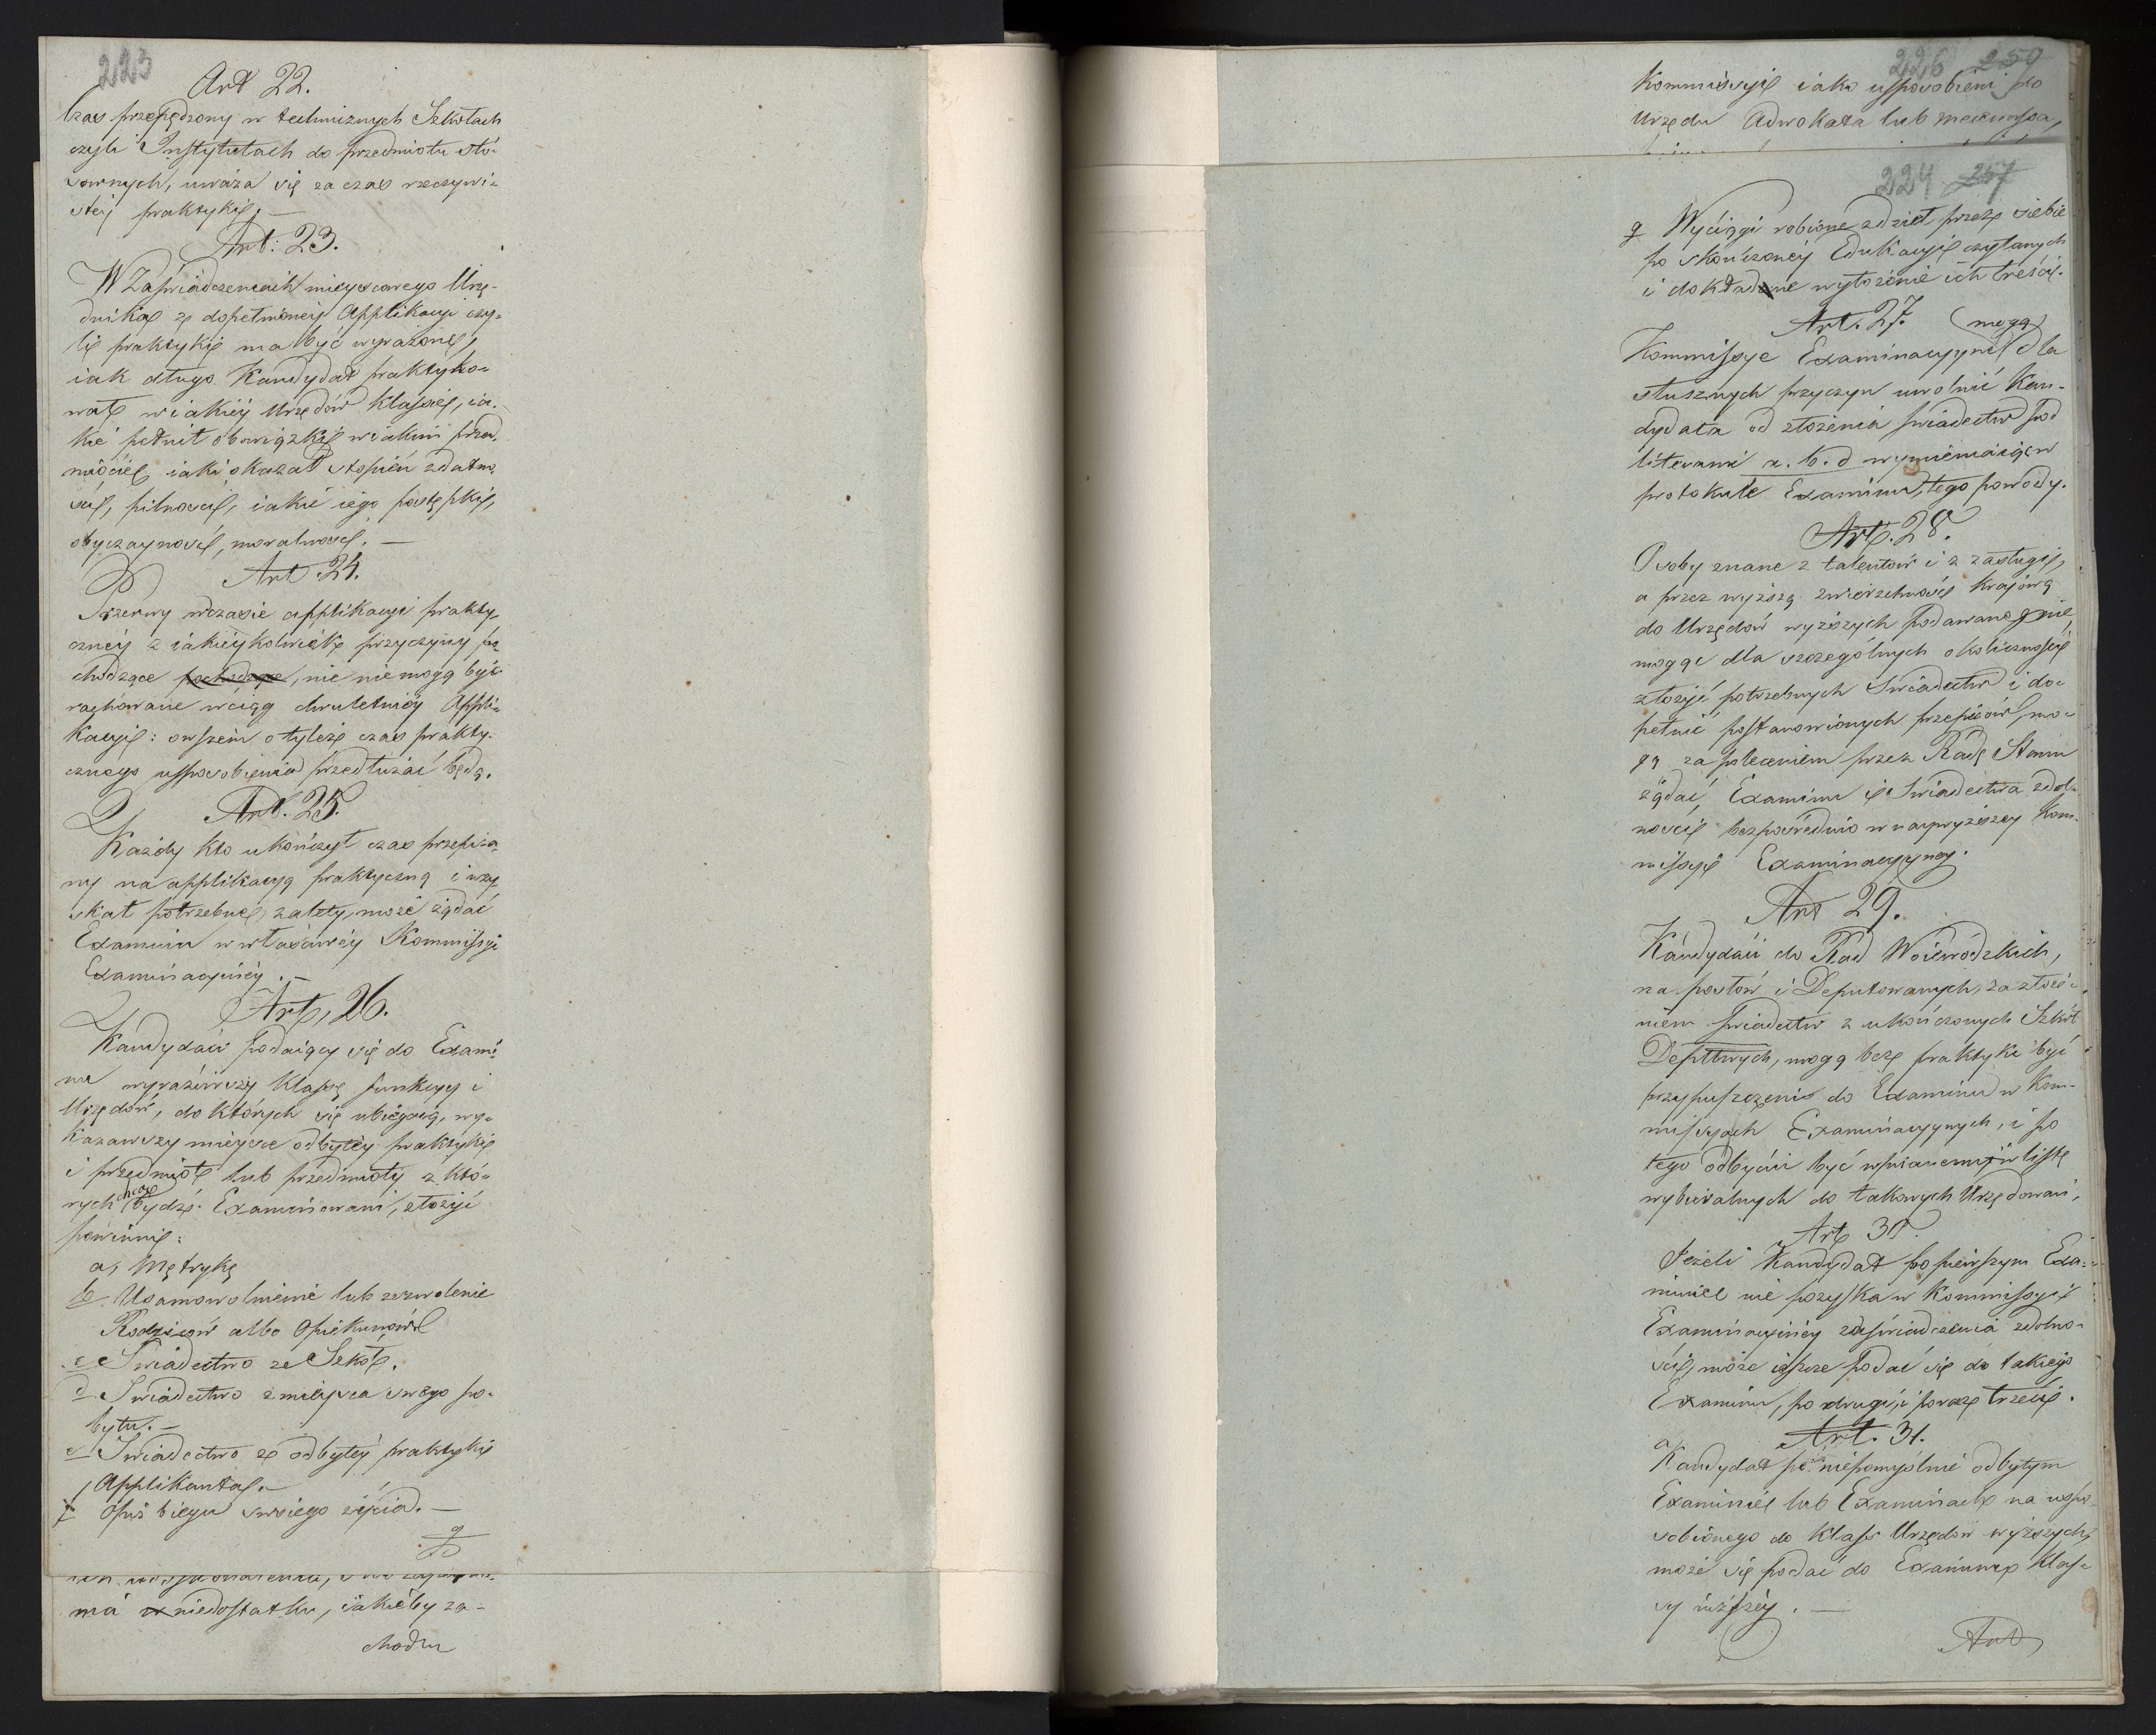 223
Art 22.
Czas przepędzony w technicznych Szkołach
czyli Instytutach do przedmiotu sto-
sownych, uważa się za czas rzeczywi-
stej praktyki. —
Art: 23.
W Zaświadczeniach mieyscowego Urzę-
dnika z dopełnioney Applikacyi czy-
li praktyki ma być wyrażone,
iak długo Kandydat praktyko-
wał, w iakiéy Urzędów klassie, ia-
kie pełnił obowiązki w iakim przed-
miocie, iaki okazał stopień zdatno-
ści, pilności, iakie iego postępki,
obyczayność, moralność. —
Art. 24.
Przerwy w czasie applikacyi prakty-
cznéy z iakieykolwiek przyczyny po-
chodzące pochodzące, nie nie mogą być
rachowane w ciąg dwuletniéy Appli-
kacyi: owszem o tyleż czas prakty-
cznego usposobienia przedłużać będą.
Art. 25.
Każdy kto ukończył czas przepisa-
ny na applikacyą praktyczną i uzy-
skał potrzebne zalety, może żądać
Examinu w właściwéy Kommissyi
Examinacyinéy. —
Art, 26.
Kandydaci podaiący się do Exami-
nu wyraziwszy klassę funkcyi i
Urzędów, do których się ubiegaią, wy-
kazawszy mieysce odbytéy praktyki
i przedmiot lub przedmioty z któ-
rych chcą bydź Examinowani, złożyć
powinni:
a, Metrykę
b. Usamowolnienie lub zezwolenie
Rodziców albo Opiekunów
c Świadectwo ze Szkół.
d Świadectwo z mieysca swego po-
bytu. —
e Świadectwo z odbytéy praktyki
Applikanta. —
f Opis biegu swoiego życia. —
g
ma w niedostatku, iakieby za-
chodzu
226 259
Kommissyi iako usposobieni do
Urzędu Adwokata lub mecenasa,
224 257
g Wyciągi robione z dzieł przez siebie
po skończonéy Edukacyi czytanych
i dokładne wyłożenie ich treści.
Art. 27.
(mogą)
Kommissye Examinacyyne dla
słusznych przyczyn uwolnić Kan-
dydata od złożenia świadectw pod
literami a. b. d wymieniaiąc w
protokule Examinu, tego powody.
Art. 28.
Osoby znane z talentów i z zasługi,
a przez wyższą zwierzchność Krajową
do Urzędów wyższych podawane, nie
mogąc dla szczególnych okoliczności
złożyć potrzebnych Świadectw i do-
pełnić postanowionych przepisów, mo-
gą za poleceniem przez Radę Stanu
żądać Examinu i Świadectwa zdol-
ności bezpośrednio w naywyższey Kom-
missyi Examinacyyney.
Art 29.
Kandydaci do Rad Woiewódzkich,
na posłów i Deputowanych, za złoże-
niem świadectw z ukończonych Szkół
Depttwych, mogą bez praktyki być
przypuszczeni do Examinu w Kom-
missyach Examinacyynych, i po
tego odbyciu być wpisanemi w listę
wybieralnych do takowych Urzędowań.
Art 30.
Jeżeli Kandydat po pierwszym Exa-
minie nie pozyska w Kommissyi
Examinacyinéy zaświadczenia zdolno-
ści, może ieszcze podać się do takiego
Examinu, po drugi, i poraz trzeci.
Art. 31.
Kandydat po niepomyślnie odbytym
Examinie lub Examinach na uspo-
sobionego do klass Urzędów wyższych,
może się podać do Examinu klas-
sy niższéy. —
Art